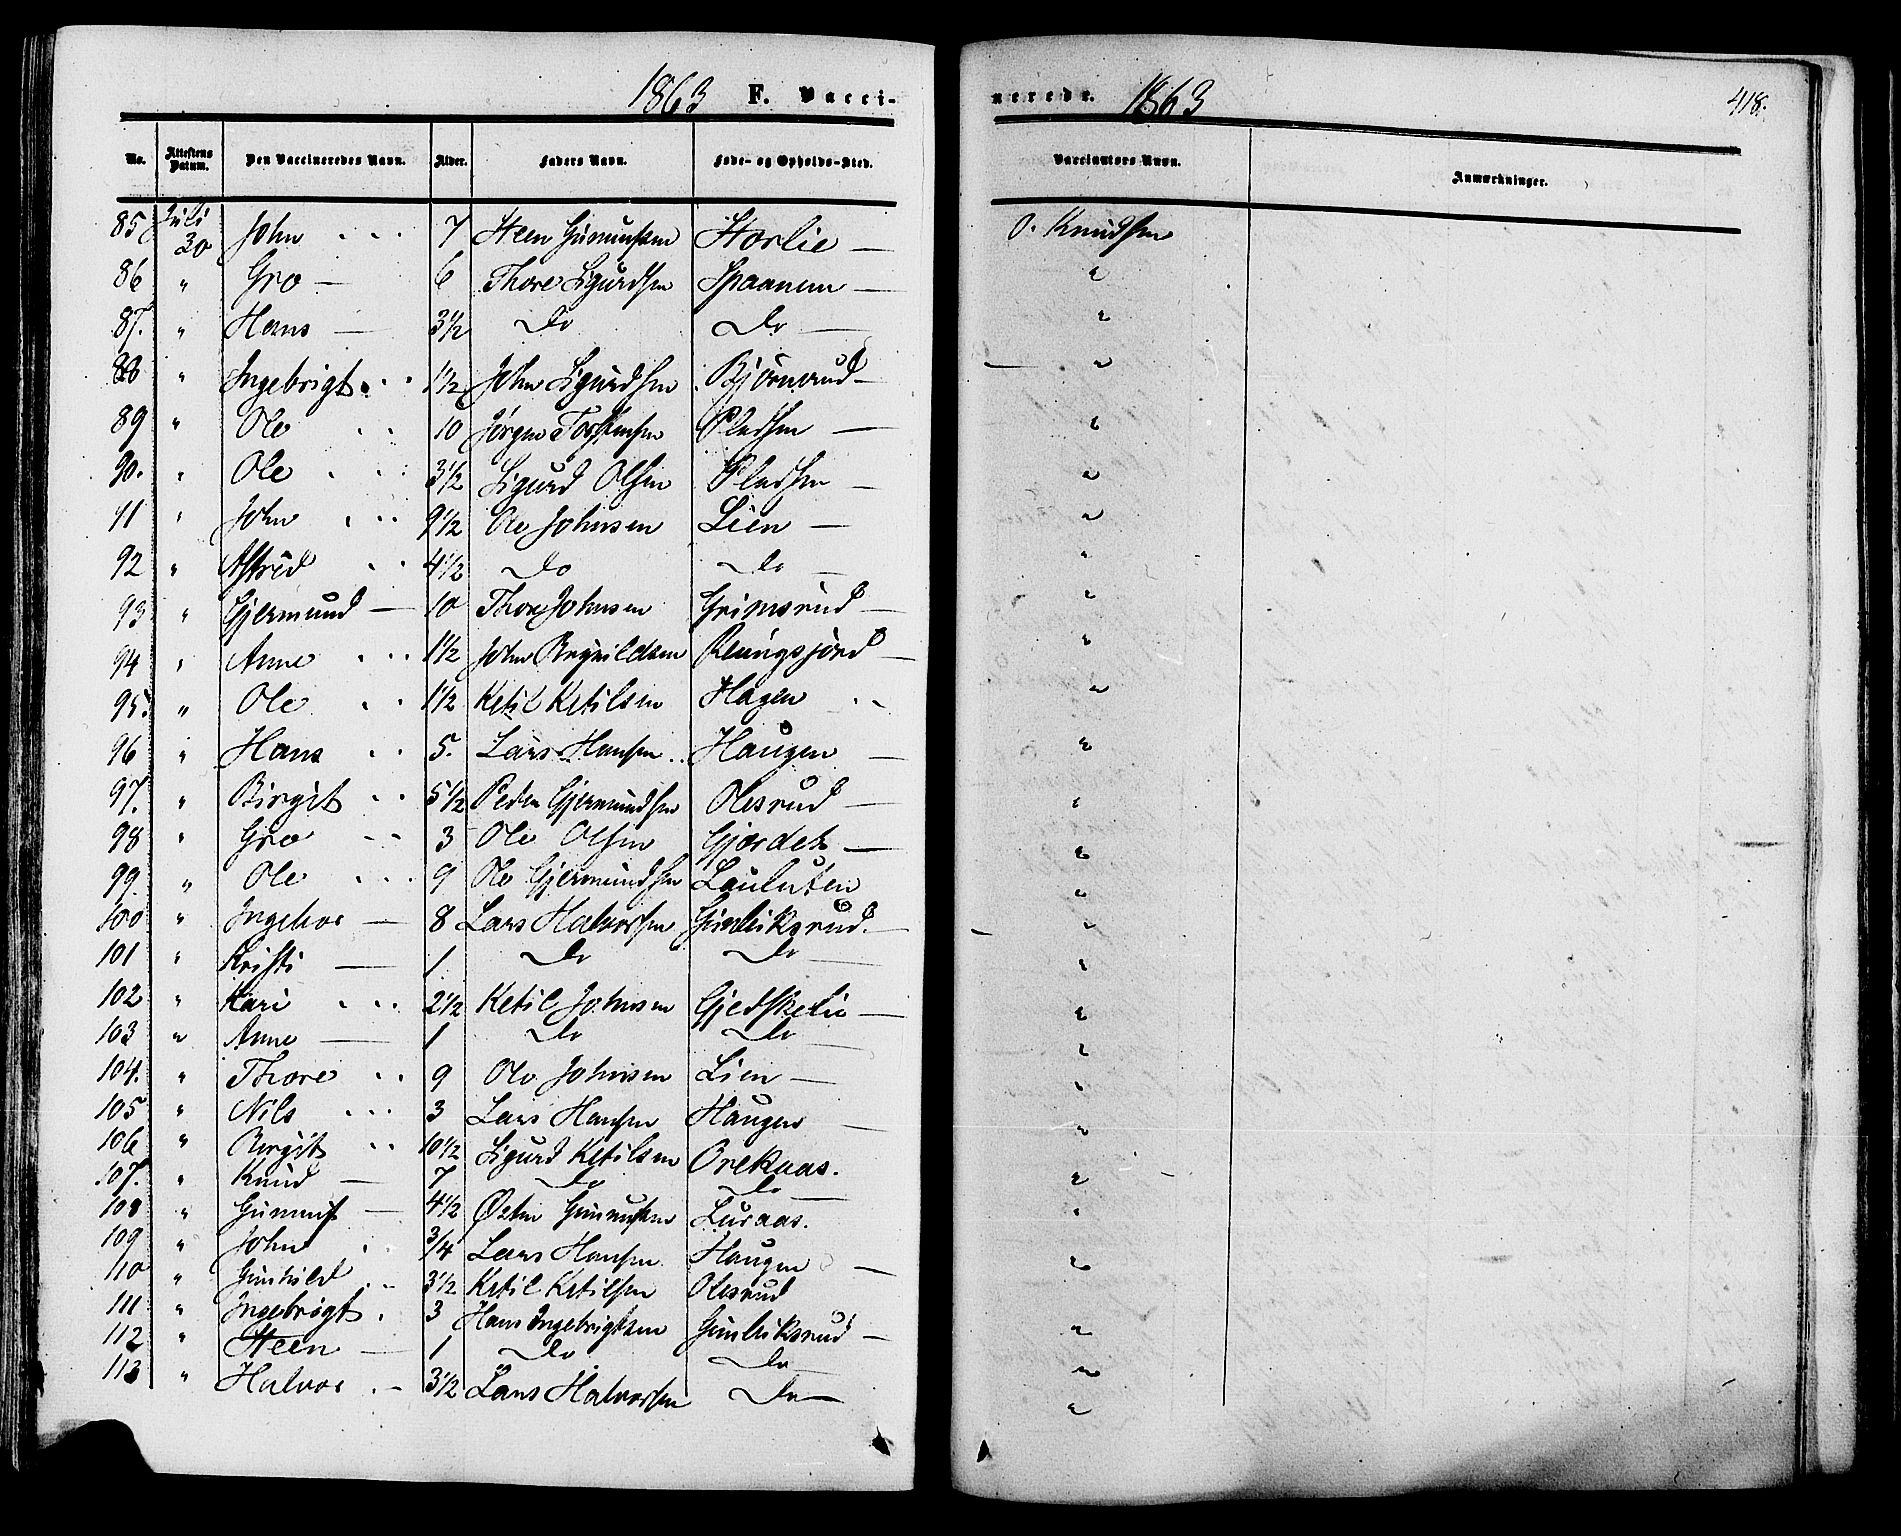 1863 F. Vacci-
nerede. 1863 418.
No. Attestens Datum. Den Vaccineredes Navn. Alder. Faders Navn. Føde- og Opholds-Sted. Vaccinators Navn. Anmærkninger.
85 Juli 30 John 7 Steen Gunnufsen Storlie — O. Knudsen
86 " Gro — 6 Thore Sigurdsen Spaanem — "
87. " Hans — 3½ Do Do — "
88 " Ingebrigt 1½ John Sigurdsen Bjørnerud — "
89 " Ole 10 Jørgen Torstensen Pladsen — "
90. " Ole 3½ Sigurd Olsen Pladsen — "
91 " John 9½ Ole Johnsen Lien — "
92 " Astrid 4½ Do Do — "
93 " Gjermund — 10 Thore Johnsen Grimsrud — "
94 " Anne 1½ John "
95. " Ole 1½ Ketil Ketilsen Hagen "
96 " Hans 5. Lars Hansen Haugen — "
97. " Birgit 5½ Peder Gjermundsen Olesrud — "
98 " Gro 3 Ole Olsen Gjordet — "
99 " Ole 9 Ole Gjermundsen Lauluten "
100 " Ingebor — 8 Lars Halvorsen Gunleiksrud. — "
101 " Kristi — 1 Do Do — "
102 " Kari 2½ Ketil Johnsen — "
103 " Anne — 1 Do Do — "
104. " Thore 9 Ole Johnsen Lien — "
105 " Nils 3 Lars Hansen Haugen — "
106 " Birgit 10½ Sigurd Ketilsen Orekaas. "
107. " Knud — 7 Do Do — "
108 " Gunnuf — 4½ Østen Gunnufsen Luraas. "
109 " John ¾ Lars Hansen Haugen — "
110 " Gunhild 3½ Ketil Ketilsen Olesrud
111 " Ingebrigt 3 Hans Ingebrigtsen Gunleiksrud — "
112 " Steen — 1 Do Do "
113 " Halvor 3½ Lars Halvorsen Do — "